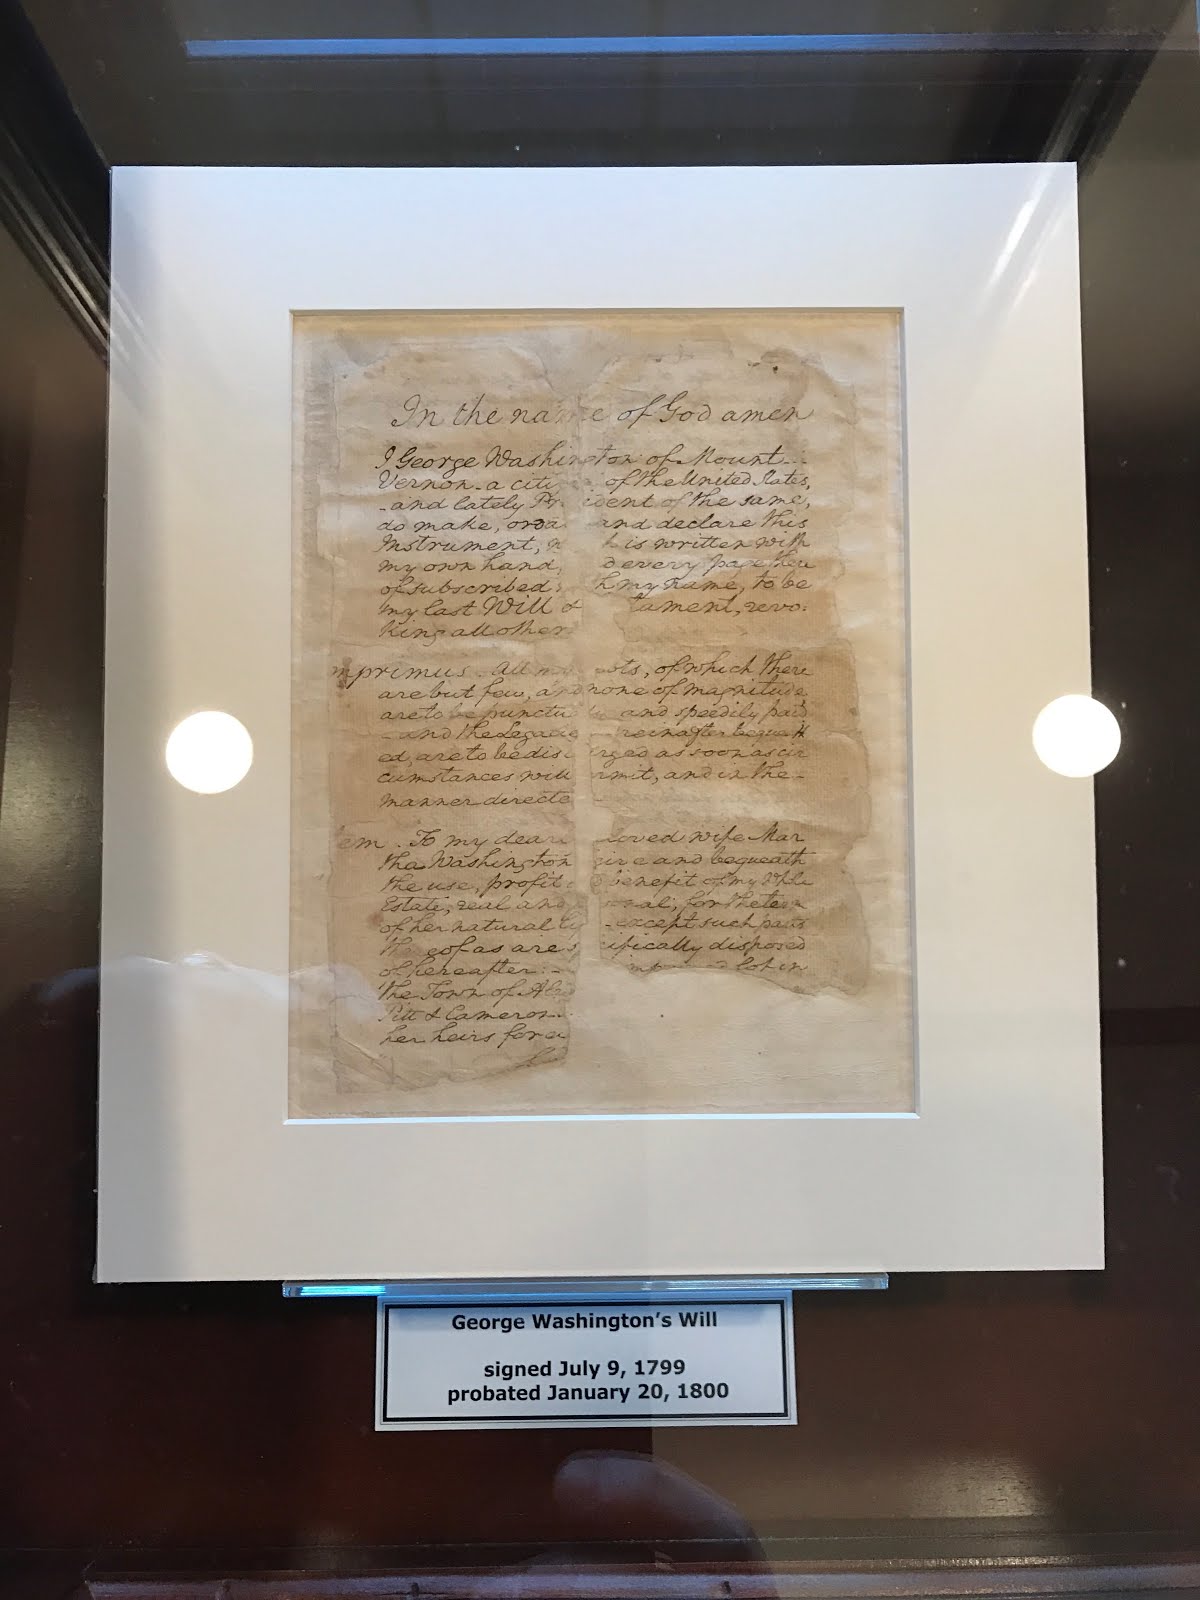 In the name of God amen
I George Washington of Mount
Vernon a citi of the United States,
and lately Pr ident of the same,
do make, orda and declare this
Instrument, w h is written with
my own hand, d every page there
of subscribed h my name, to be
my last Will & tament, revo:
king all other
mprimus. All my bts, of which there
are but few, and none of magnitude
are to be punctu ly and speedily paid
and the Legacie reinafter bequeath
ed, are to be dis arged as soon as cir
cumstances will ermit, and in the
manner directe
em. To my dear loved wife Mar
tha Washington give and bequeath
the use, profit benefit of my whole
Estate, real and onal, for the term
of her natural li except such parts
thereof as are s cifically disposed
of hereafter:
lot in
the Town of Alex
Pitt & Cameron
her heirs for e
George Washington's Will
signed July 9, 1799
probated January 20, 1800